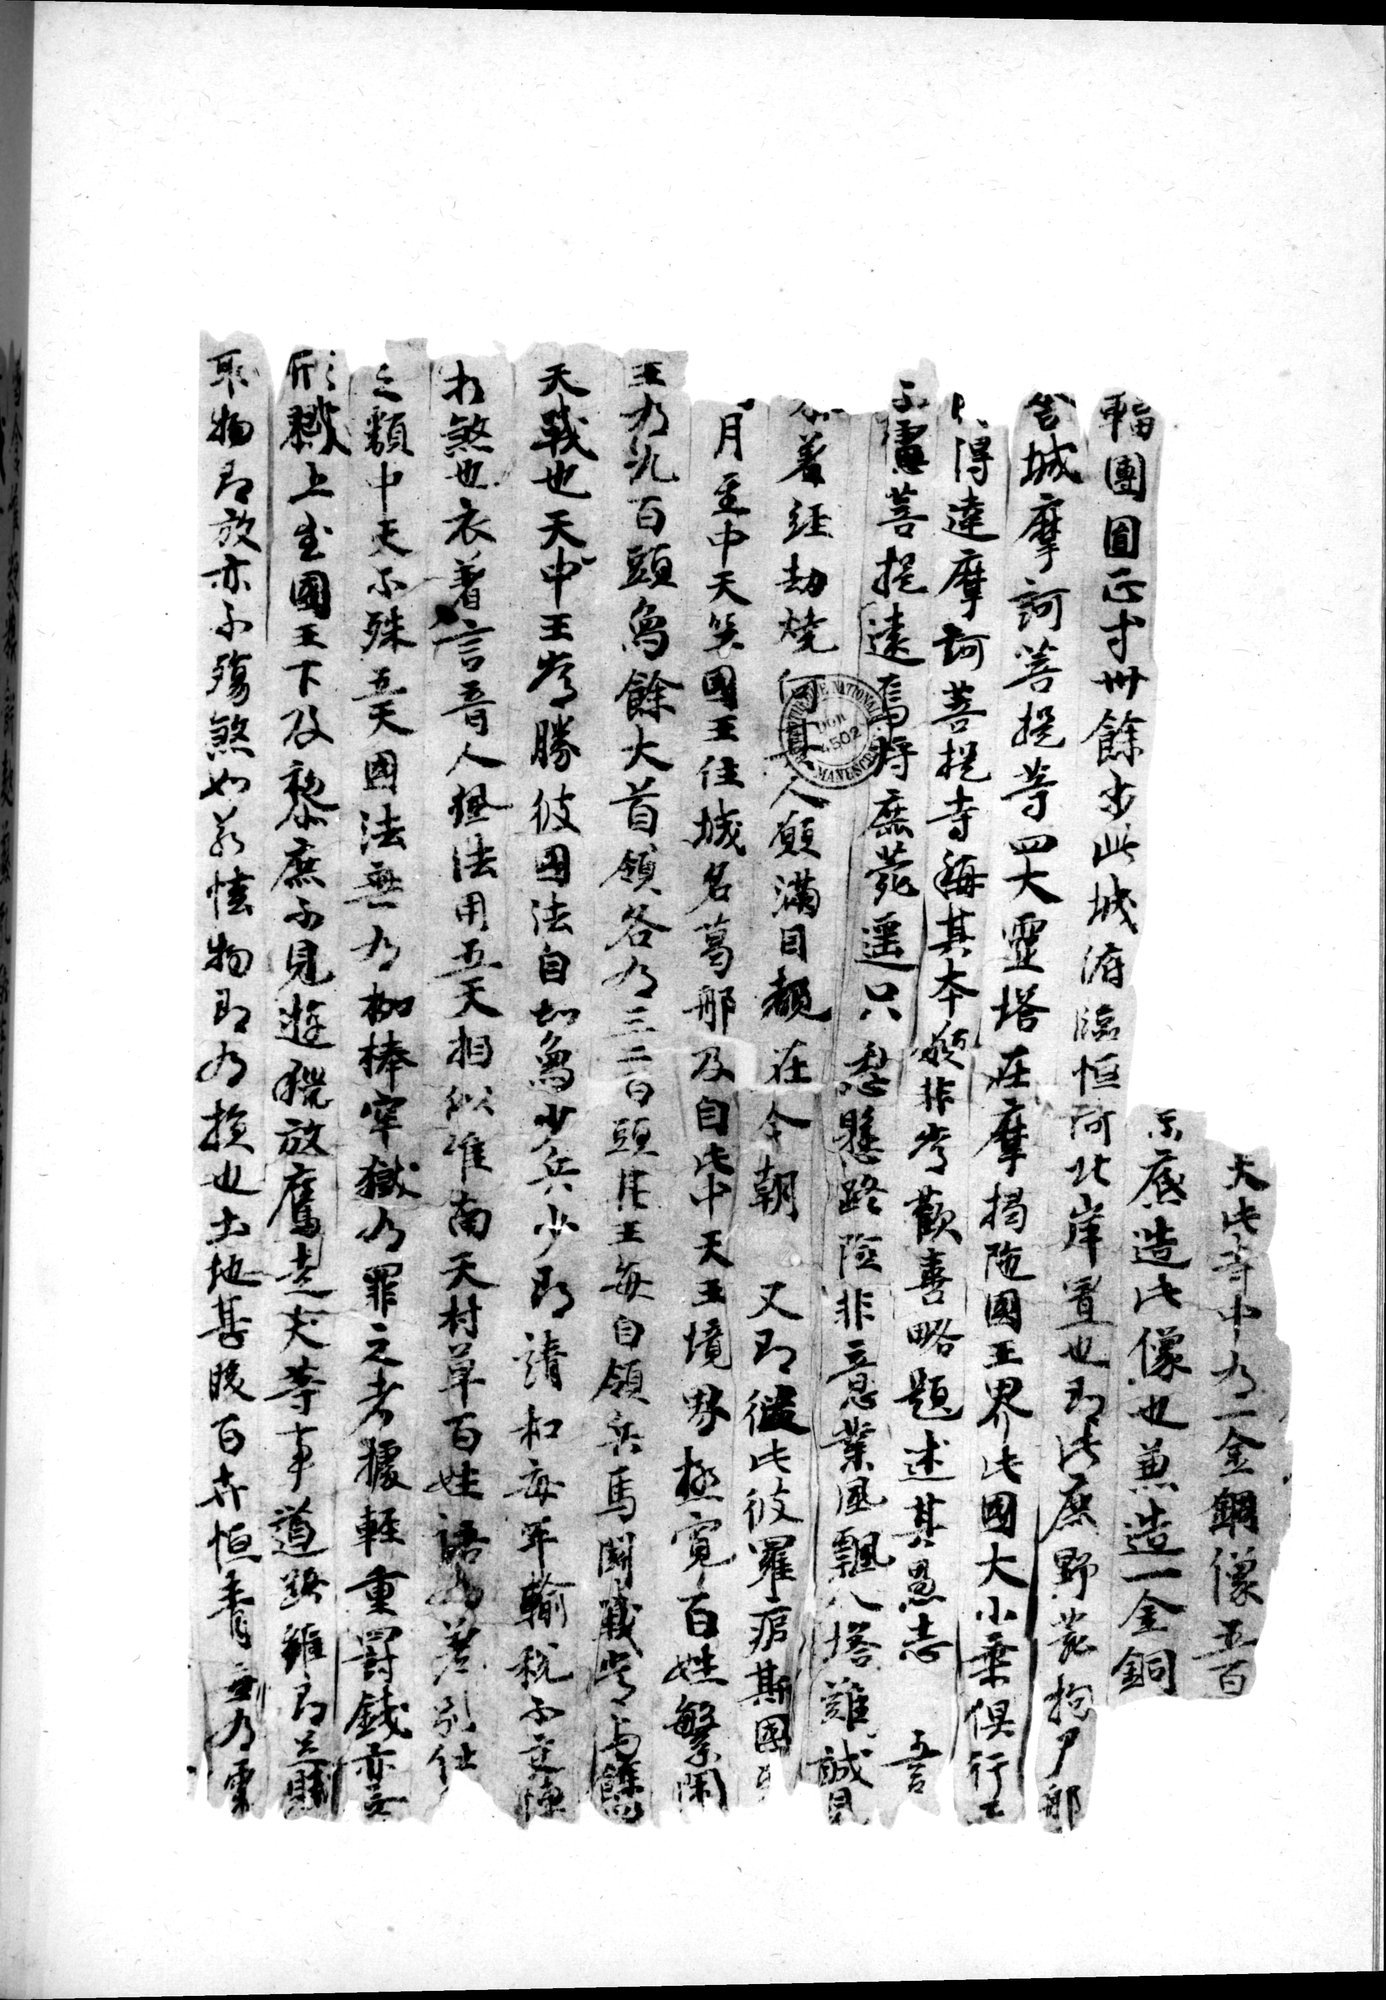 大此寺中有一金銅像五百
底造此像也兼造一金銅
輻團圓正等卅餘步此城俯臨恒河北岸置也即此鹿野苑拘尸那
舍城摩訶菩提等四大靈塔在摩揭陁國王界此國大小乘俱行
得達摩訶菩提寺稱其本願非常歡喜略題述其愚志 五言
不慮菩提遠焉將鹿苑遥只愁懸路險非意業風飄八塔難誠見
着經劫燒何其人願滿目覩在今朝 又即從此彼羅痆斯國
月至中天笁國王住城名葛那及自此中天王境界極寬百姓繁鬧
王有九百頭象餘大首領各有三二百頭其王每自領兵馬鬪戰常与餘
天戰也天中王常勝彼國法自知象少兵少即請和每年輸稅不交陣
相煞也衣著言音人風法用五天相似唯南天村草百姓語有差別仕
之類中天不殊五天國法無有枷棒牢獄有罪之者據輕重罰錢亦無
形戮上至國王下及黎庶不見遊獵放鷹走犬等事道路雖即足賊
取物即放亦不殤煞如若恡物即有損也土地甚暖百卉恒青無有霜
BIBLIOTHEQUE NATIONALE
MANUSCRITS